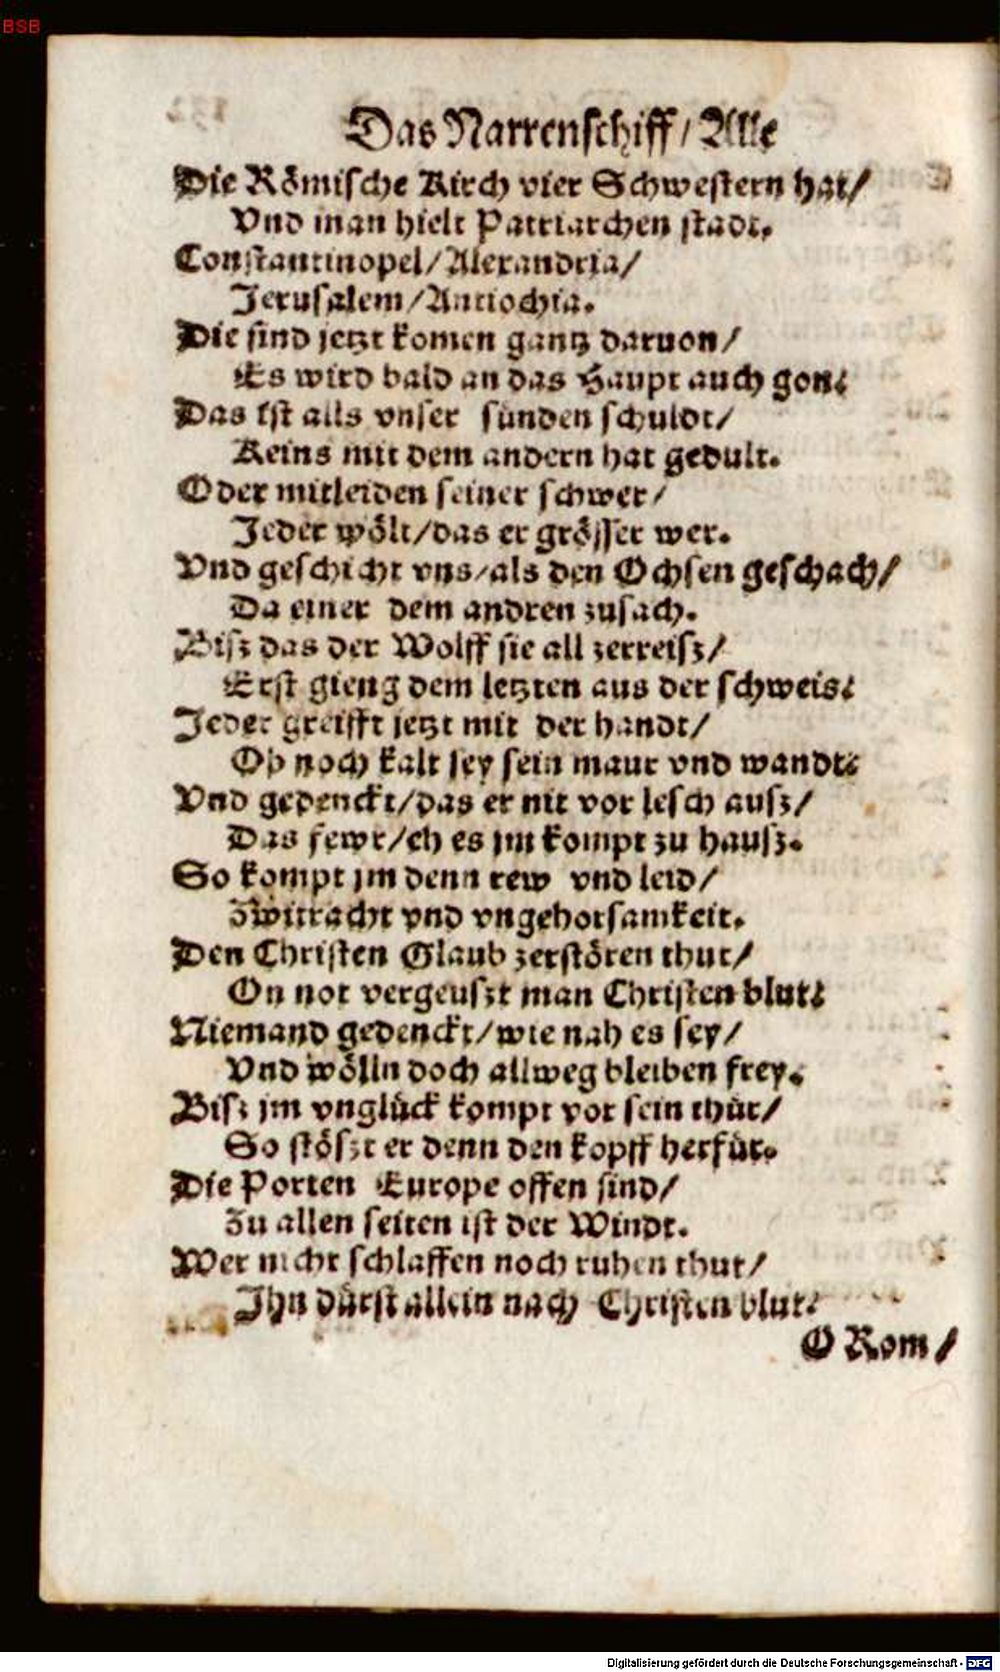 BSB
Das Narrenschiff/ Alle
Die Römische Kirch vier Schwestern hat/
Vnd man hielt Patriarchen stadt.
Constantinopel/Alexandria/
Jerusalem/Antiochia.
Die sind jetzt komen gantz daruon/
Es wird bald an das Haupt auch gon:
Das ist alls vnser sünden schuldt/
Keins mit dem andern hat gedult.
Oder mitleiden seiner schwer/
Jeder wölt/das er grösser wer.
Vnd geschicht vns/als den Ochsen geschach/
Da einer dem andren zusach.
Bisz das der Wolff sie all zerreisz/
Erst gieng dem letzten aus der schweis:
Jeder greifft jetzt mit der handt/
Ob noch kalt sey sein maur vnd wandt:
Vnd gedenckt/das er nit vor lesch ausz/
Das fewr/eh es jm kompt zu hausz.
So kompt jm denn rew vnd leid/
Zwitracht vnd vngehorsamkeit.
Den Christen Glaub zerstören thut/
On not vergeuszt man Christen blut:
Niemand gedenckt/wie nah es sey/
Vnd wölln doch allweg bleiben frey.
Bisz jm vnglück kompt vor sein thür/
So stöszt er denn den kopff herfür.
Die Porten Europe offen sind/
Zu allen seiten ist der Windt.
Wer nicht schlaffen noch ruhen thut/
Jhn dürst allein nach Christen blut:
O Rom/
Digitalisierung gefördert durch die Deutsche Forschungsgemeinschaft - DFG